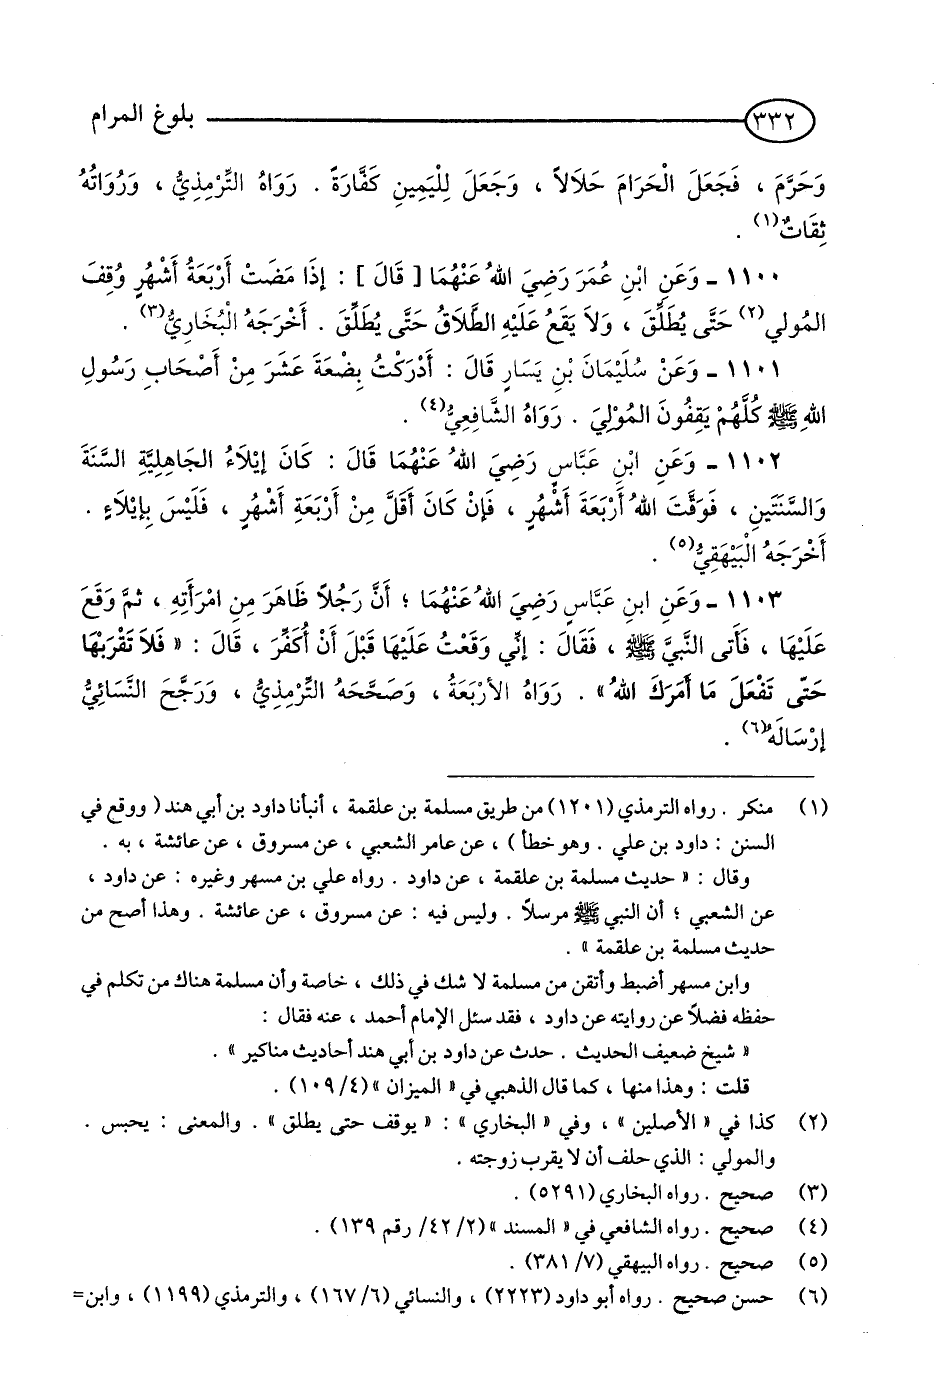 ٣٣٢ بلوغ المرام
وَحَرَّمَ ، فَجَعَلَ الْحَرَامَ حَلَالاً ، وَجَعَلَ لِلْيَمِينِ كَفَّارَةً . رَوَاهُ التِّرْمِذِيُّ ، وَرُوَاتُهُ
ثِقَاتٌ(١) .
١١٠٠ - وَعَنِ ابْنِ عُمَرَ رَضِيَ اللهُ عَنْهُمَا [ قَالَ ] : إِذَا مَضَتْ أَرْبَعَةُ أَشْهُرٍ وُقِفَ
المُولي(٢) حَتَّى يُطَلِّقَ ، وَلاَ يَقَعُ عَلَيْهِ الطَّلاَقُ حَتَّى يُطَلِّقَ . أَخْرَجَهُ الْبُخَارِيُّ(٣) .
١١٠١ - وَعَنْ سُلَيْمَانَ بْنِ يَسَارٍ قَالَ : أَدْرَكْتُ بِضْعَةَ عَشَرَ مِنْ أَصْحَابِ رَسُولِ
اللهِ ﷺ كُلُّهُمْ يَقِفُونَ المُوْلِيَ . رَوَاهُ الشَّافِعِيُّ(٤) .
١١٠٢ - وَعَنِ ابْنِ عَبَّاسٍ رَضِيَ اللهُ عَنْهُمَا قَالَ : كَانَ إِيْلاَءُ الجَاهِلِيَّةِ السَّنَةَ
وَالسَّنَتَينِ ، فَوَقَّتَ اللهُ أَرْبَعَةَ أَشْهُرٍ ، فَإِنْ كَانَ أَقَلَّ مِنْ أَرْبَعَةِ أَشْهُرٍ ، فَلَيْسَ بِإِيْلَاءٍ .
أَخْرَجَهُ الْبَيْهَقِيُّ(٥) .
١١٠٣ - وَعَنِ ابنِ عَبَّاسٍ رَضِيَ اللهُ عَنْهُمَا ؛ أَنَّ رَجُلاً ظَاهَرَ مِنِ امْرَأَتِهِ ، ثمَّ وَقَعَ
عَلَيْهَا ، فَأَتى النَّبِيَّ ﷺ ، فَقَالَ : إِنِّي وَقَعْتُ عَلَيْهَا قَبْلَ أَنْ أُكَفِّرَ ، قَالَ : « فَلاَ تَقْرَبْهَا
حَتّى تَفْعَلَ مَا أَمَرَكَ اللهُ » . رَوَاهُ الأَرْبَعَةُ ، وَصَحَّحَهُ التِّرْمِذِيُّ ، وَرَجَّحَ النَّسَائِيُّ
إِرْسَالَهُ(٦) .
(١) منكر . رواه الترمذي (١٢٠١) من طريق مسلمة بن علقمة ، أنبأنا داود بن أبي هند ( ووقع في
السنن : داود بن علي . وهو خطأ ) ، عن عامر الشعبي ، عن مسروق ، عن عائشة ، به .
وقال : « حديث مسلمة بن علقمة ، عن داود . رواه علي بن مسهر وغيره : عن داود ،
عن الشعبي ؛ أن النبي ﷺ مرسلاً . وليس فيه : عن مسروق ، عن عائشة . وهذا أصح من
حديث مسلمة بن علقمة » .
وابن مسهر أضبط وأتقن من مسلمة لا شك في ذلك ، خاصة وأن مسلمة هناك من تكلم في
حفظه فضلاً عن روايته عن داود ، فقد سئل الإمام أحمد ، عنه فقال :
« شيخ ضعيف الحديث . حدث عن داود بن أبي هند أحاديث مناكير » .
قلت : وهذا منها ، كما قال الذهبي في « الميزان » (٤/ ١٠٩) .
(٢) كذا في « الأصلين » ، وفي « البخاري » : « يوقف حتى يطلق » . والمعنى : يحبس .
والمولي : الذي حلف أن لا يقرب زوجته .
(٣) صحيح . رواه البخاري (٥٢٩١) .
(٤) صحيح . رواه الشافعي في « المسند » (٢/ ٤٢/ رقم ١٣٩) .
(٥) صحيح . رواه البيهقي (٧/ ٣٨١) .
(٦) حسن صحيح . رواه أبو داود (٢٢٢٣) ، والنسائي (٦/ ١٦٧) ، والترمذي (١١٩٩) ، وابن=